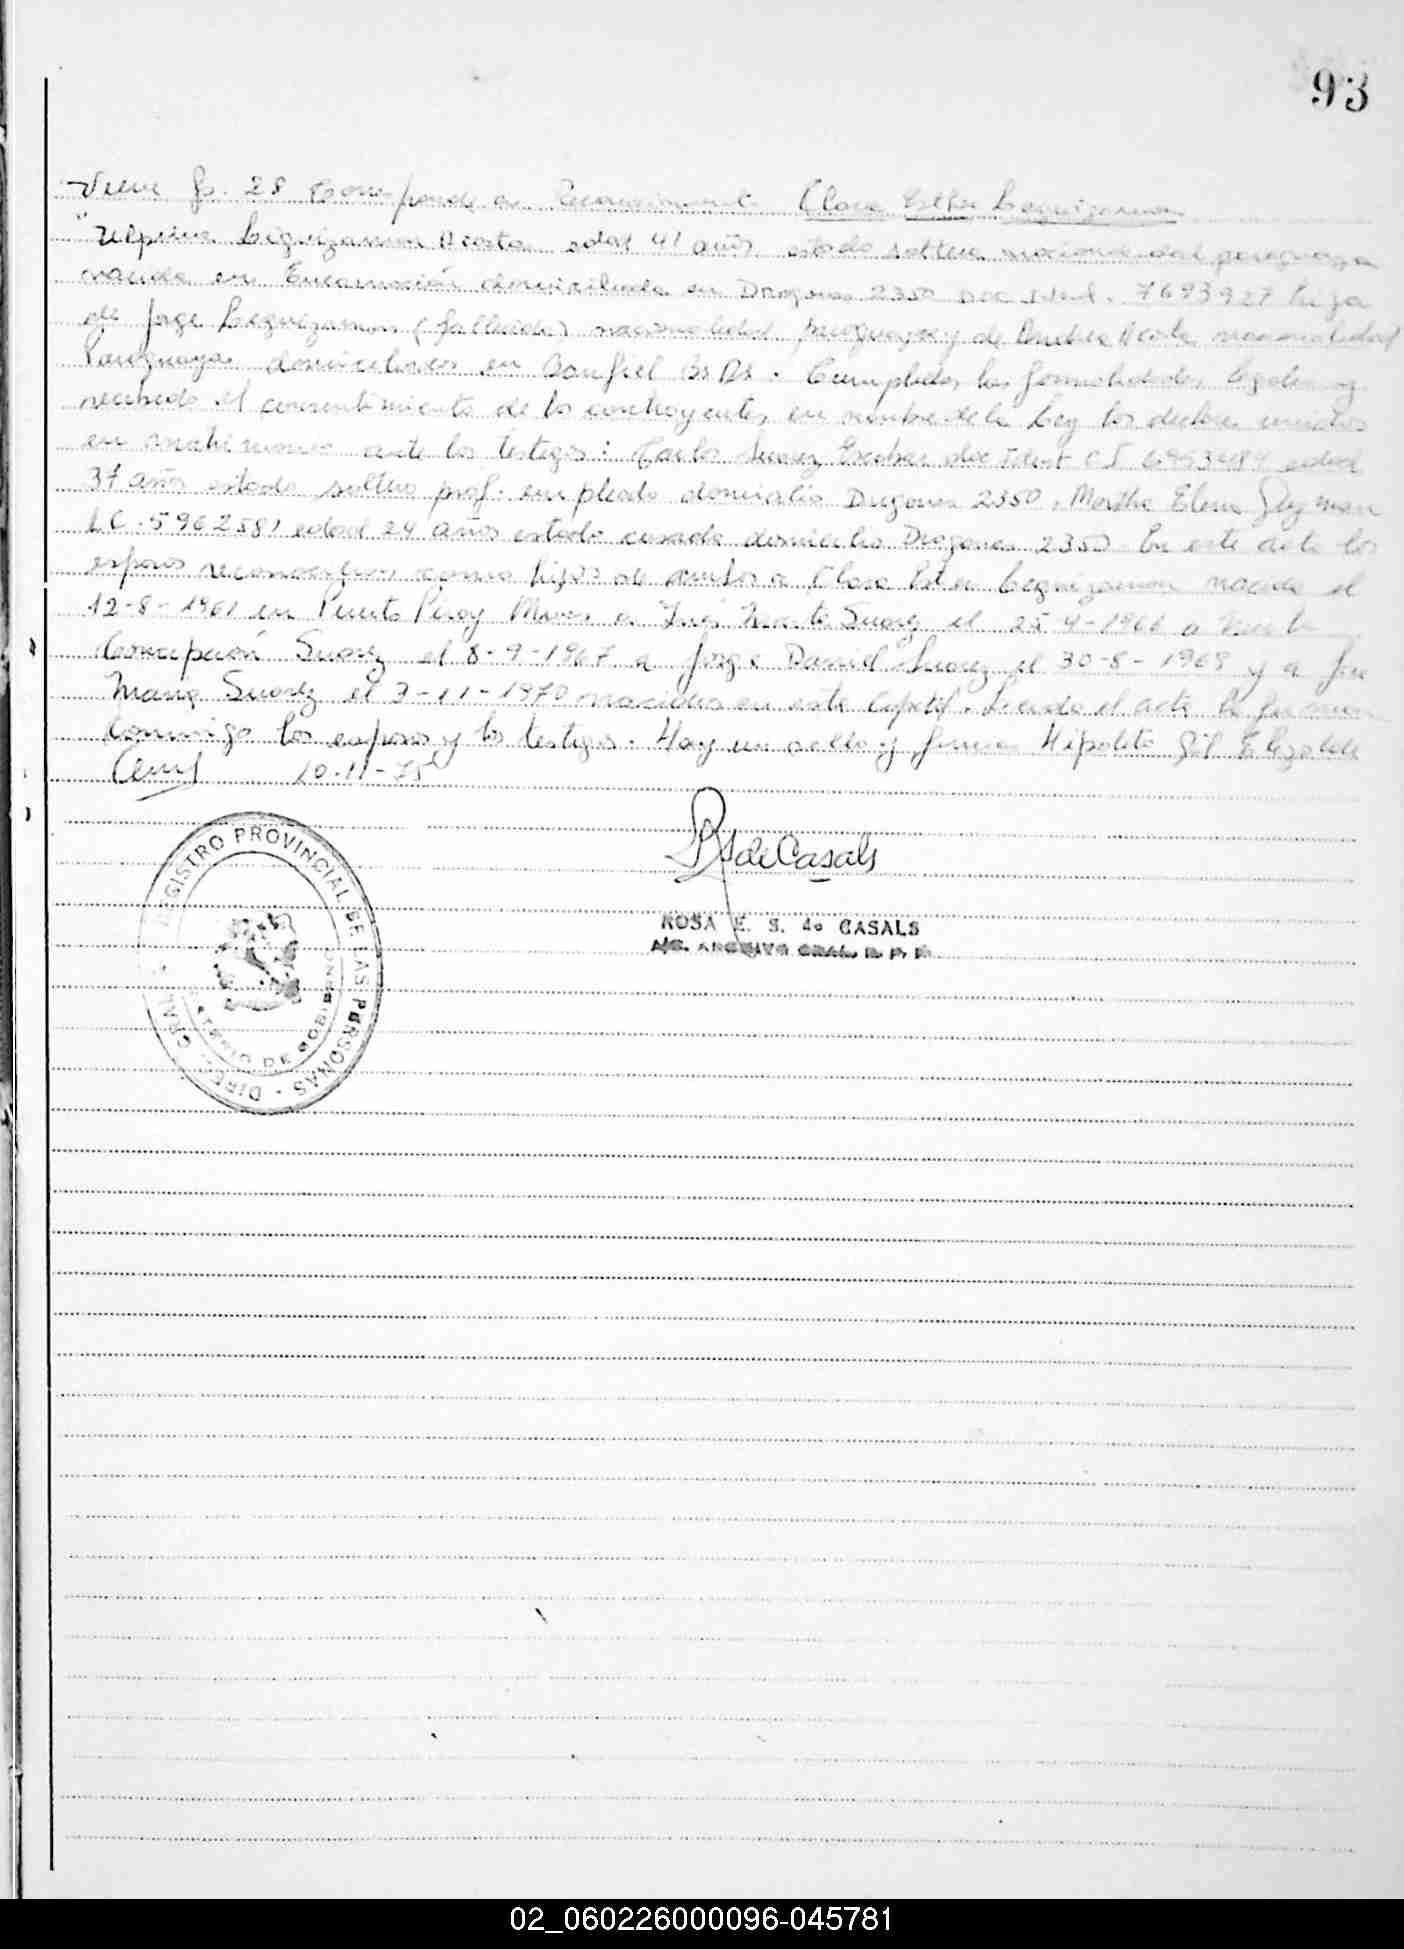 93
Viene fs. 28 Corresponde a Reconocimiento Clara Esther Leguizamon
Leguizamon Acosta edad 41 años estado soltera nacionalidad paraguaya
nacida en Encarnación domiciliada en Dragones 2350 Doc. Ident. 7693927 hija
de Jorge Leguizamon (fallecido) nacionalidad paraguayo y de Acosta nacionalidad
Paraguaya domiciliados en Banfiel Bs As. Cumplidas las formalidades legales y
recibido el consentimiento de los contrayentes, en nombre de la Ley los declaro unidos
en matrimonio ante los testigos: Carlos Suarez Escobar doc Ident C I edad
37 años estado soltero prof. empleado domicilio Dragones 2350, Martha Elena Guzman
L C. 5962581 edad 24 años estado casada domicilio Dragones 2350 En este acto los
esposos reconocen como hijos de ambos a Clara Ester Leguizamon nacida el
12-8-1961 en Puerto Piray Mnes. a Suarez el 25-4-1966 a
Concepción Suarez el 8-9-1967 a Jorge Daniel Suarez el 30-8-1969 y a
Maria Suarez el 3-11-1970 nacidos en esta Capital. Leida el acta la firman
conmigo los esposos y los testigos. Hay un sello y firma Hipolito Gil Elizalde
10-11-75
RS de Casals
ROSA E. S. de CASALS
A/C. ARCHIVO GRAL. R. P. P.
REGISTRO PROVINCIAL DE LAS PERSONAS - DIREC. GRAL.
MINISTERIO DE GOBIERNO
02_060226000096-045781